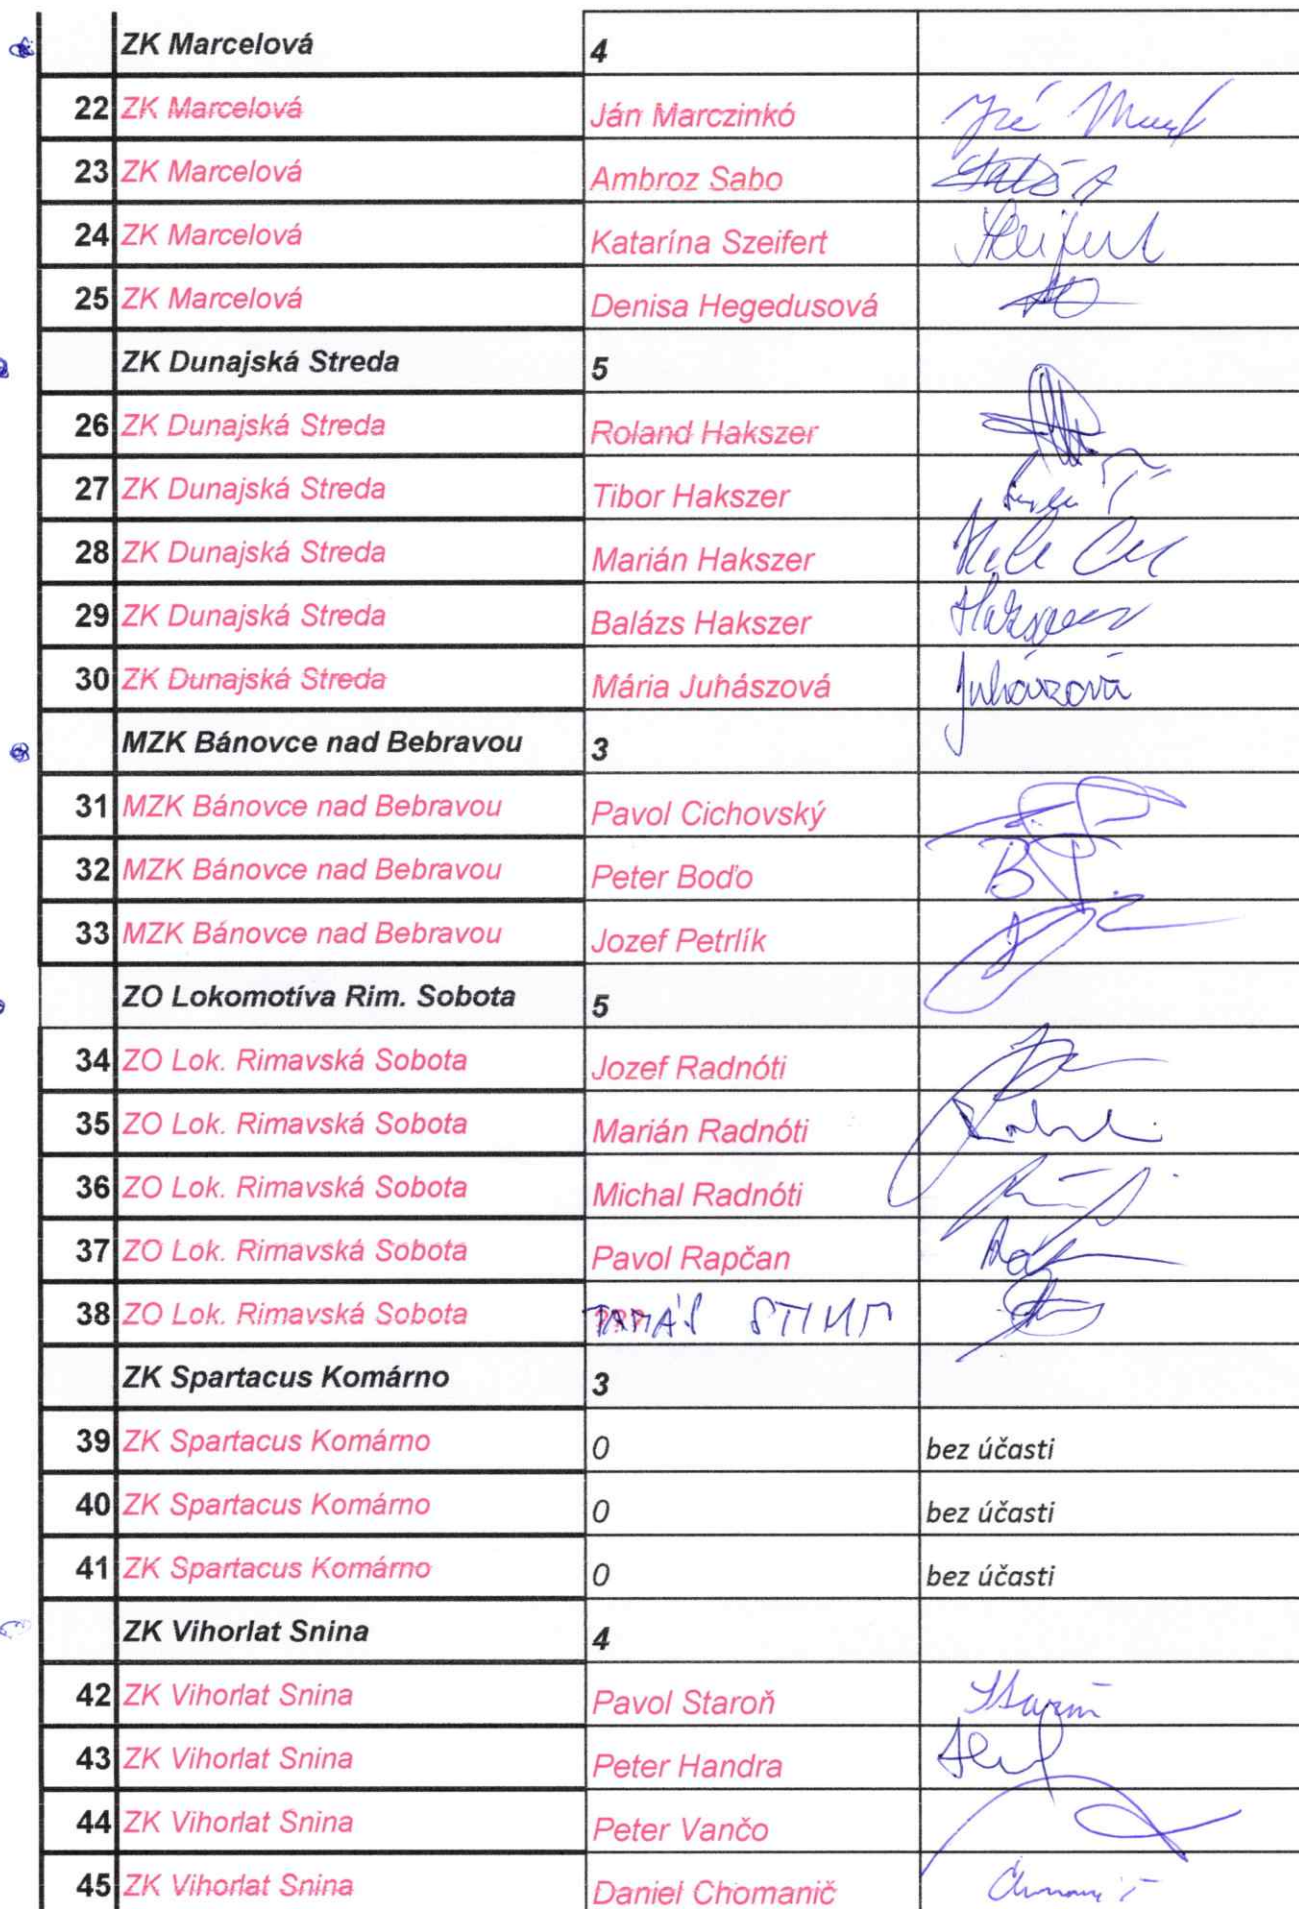 ZK Marcelová 4
22 ZK Marcelová Ján Marczinkó
23 ZK Marcelová Ambroz Sabo
24 ZK Marcelová Katarína Szeifert
25 ZK Marcelová Denisa Hegedusová
ZK Dunajská Streda 5
26 ZK Dunajská Streda Roland Hakszer
27 ZK Dunajská Streda Tibor Hakszer
28 ZK Dunajská Streda Marián Hakszer
29 ZK Dunajská Streda Balázs Hakszer
30 ZK Dunajská Streda Mária Juhászová Juhászová
MZK Bánovce nad Bebravou 3
31 MZK Bánovce nad Bebravou Pavol Cichovský
32 MZK Bánovce nad Bebravou Peter Boďo
33 MZK Bánovce nad Bebravou Jozef Petrlík
ZO Lokomotíva Rim. Sobota 5
34 ZO Lok. Rimavská Sobota Jozef Radnóti
35 ZO Lok. Rimavská Sobota Marián Radnóti
36 ZO Lok. Rimavská Sobota Michal Radnóti
37 ZO Lok. Rimavská Sobota Pavol Rapčan
38 ZO Lok. Rimavská Sobota
ZK Spartacus Komárno 3
39 ZK Spartacus Komárno 0 bez účasti
40 ZK Spartacus Komárno 0 bez účasti
41 ZK Spartacus Komárno 0 bez účasti
ZK Vihorlat Snina 4
42 ZK Vihorlat Snina Pavol Staroň
43 ZK Vihorlat Snina Peter Handra
44 ZK Vihorlat Snina Peter Vančo
45 ZK Vihorlat Snina Daniel Chomanič